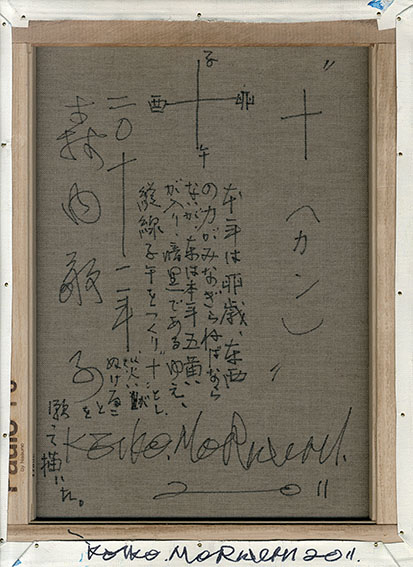 "十
(カン)"
子
酉 卯
午
本年は卯歳、東西
の力がみなぎらねばなら
ないが、東は本年五黄
が入り、暗黒であるゆえ、
縦線子午をつくり"十"とし、
災い
ぬけることを
願って描いた。
二〇十一年
森内敬子
KEIKO.MORIUCHI.
2011
KEIKO.MORIUCHI 2011.